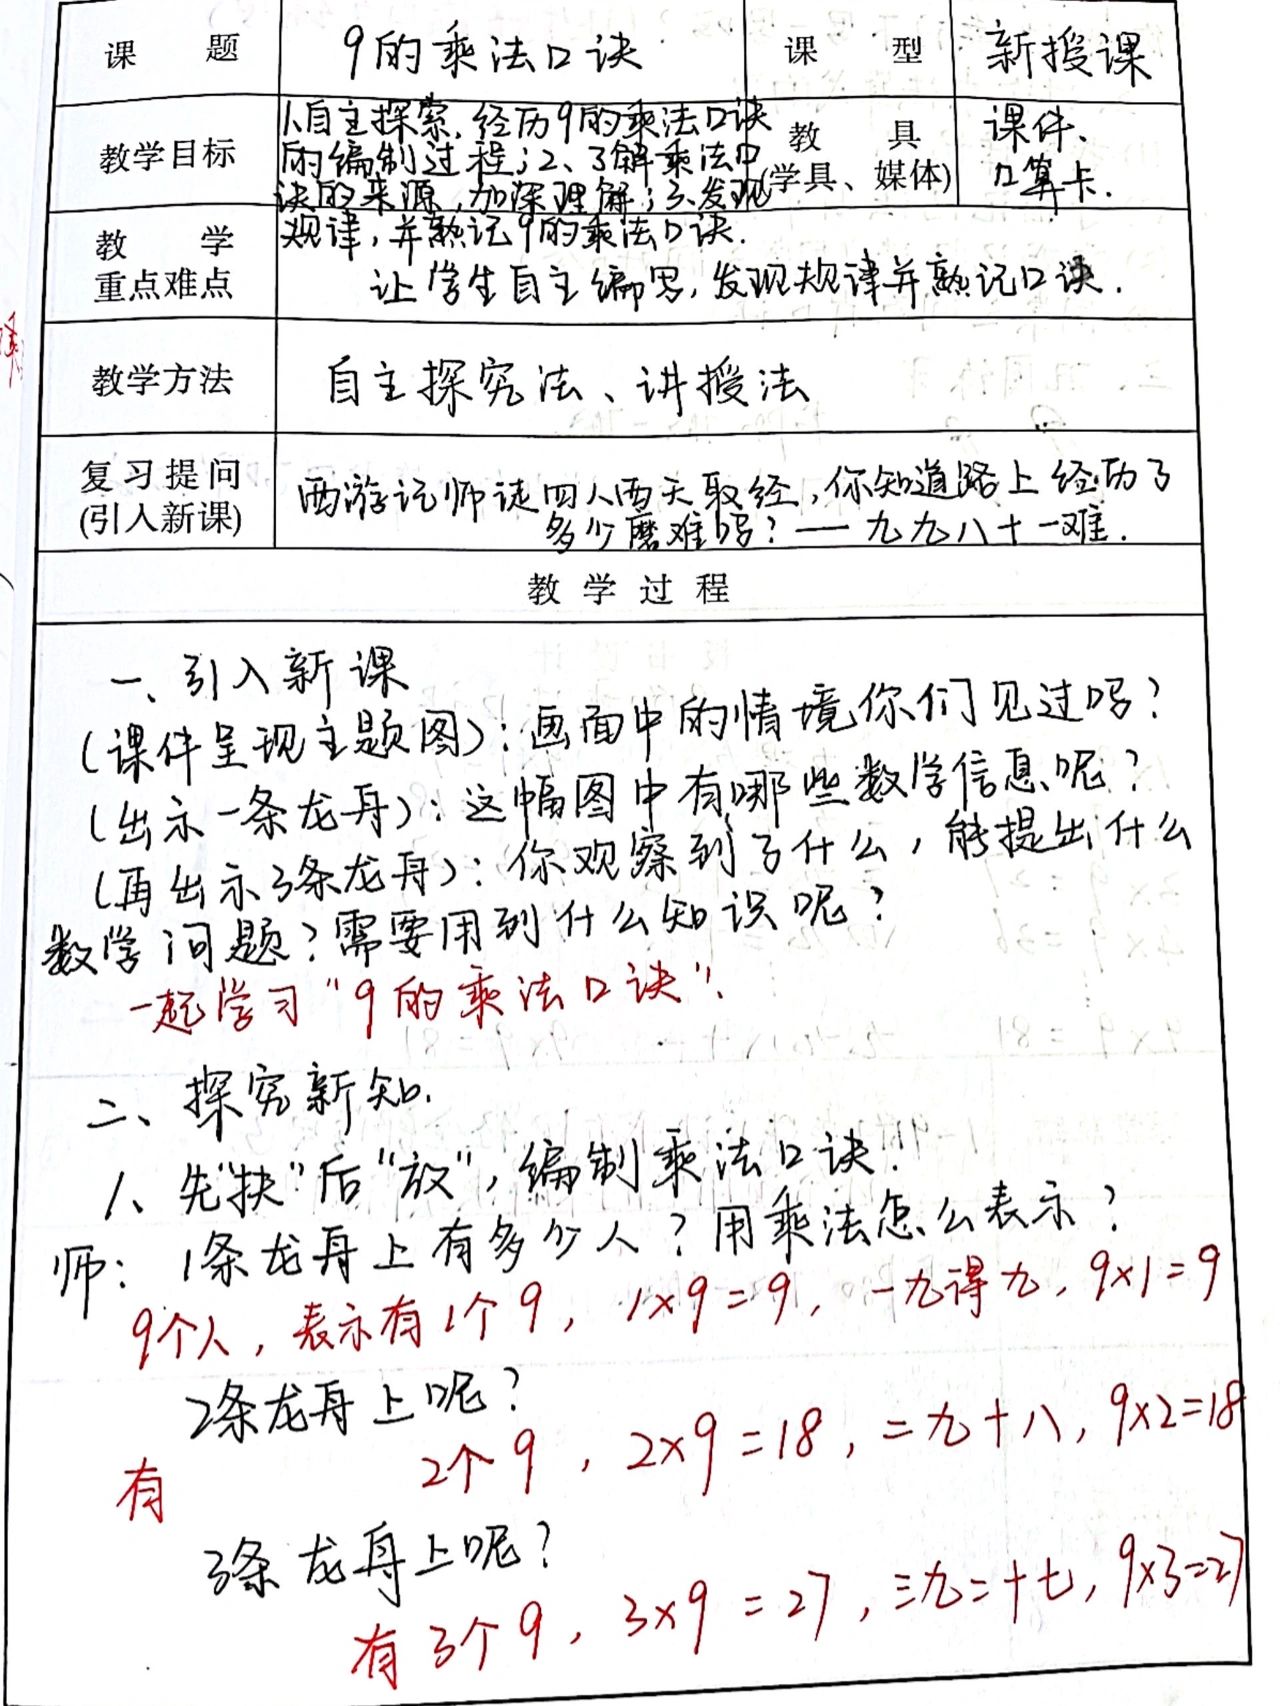 课 题 9的乘法口诀 课 型 新授课
教学目标 1、自主探索,经历9的乘法口诀
的编制过程;2、了解乘法口
诀的来源,加深理解;3、发现
规律,并熟记9的乘法口诀.
教 具
(学具、媒体)
课件、
口算卡.
教 学
重点难点
让学生自主编写,发现规律并熟记口诀.
教学方法 自主探究法、讲授法
复习提问
(引入新课)
西游记师徒四人西天取经,你知道路上经历了
多少磨难吗?—九九八十一难.
教 学 过 程
一、引入新课
(课件呈现主题图):画面中的情境你们见过吗?
(出示一条龙舟):这幅图中有哪些数学信息呢?
(再出示3条龙舟):你观察到了什么,能提出什么
数学问题?需要用到什么知识呢?
一起学习"9的乘法口诀".
二、探究新知.
1、先"扶"后"放",编制乘法口诀.
师:1条龙舟上有多少人?用乘法怎么表示?
9个人,表示有1个9,1×9=9,一九得九,9×1=9
2条龙舟上呢?
有 2个9,2×9=18,二九十八,9×2=18
3条龙舟上呢?
有3个9,3×9=27,三九二十七,9×3=27